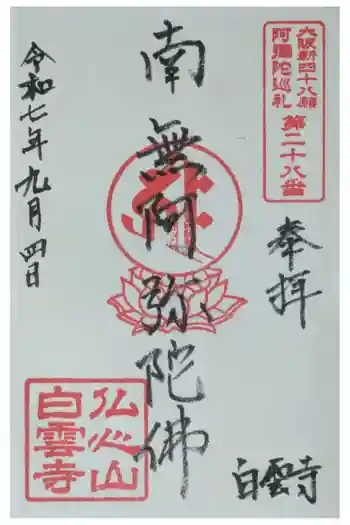 大阪新四十八願
阿彌陀巡礼
第二十八番
奉拝
南無阿弥陀佛
令和七年九月四日
白雲寺
仏心山
白雲寺